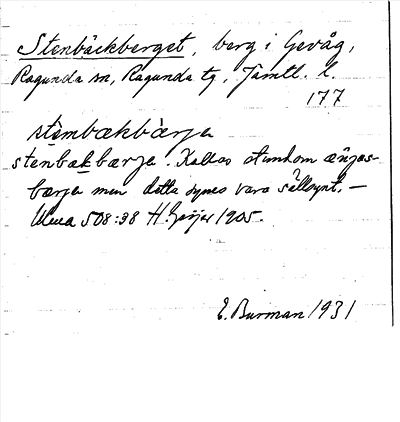 Stenbäckberget, berg i Gevåg,
Ragunda sn, Ragunda tg, Jämtl. l.
177
stèmbækbàrja
stenbækbærja. Kallas stundom ængæs-
bærja men detta synes vara sällsynt. —
Ulma 508:38 H. Geijer 1905.
E. Burman 1931